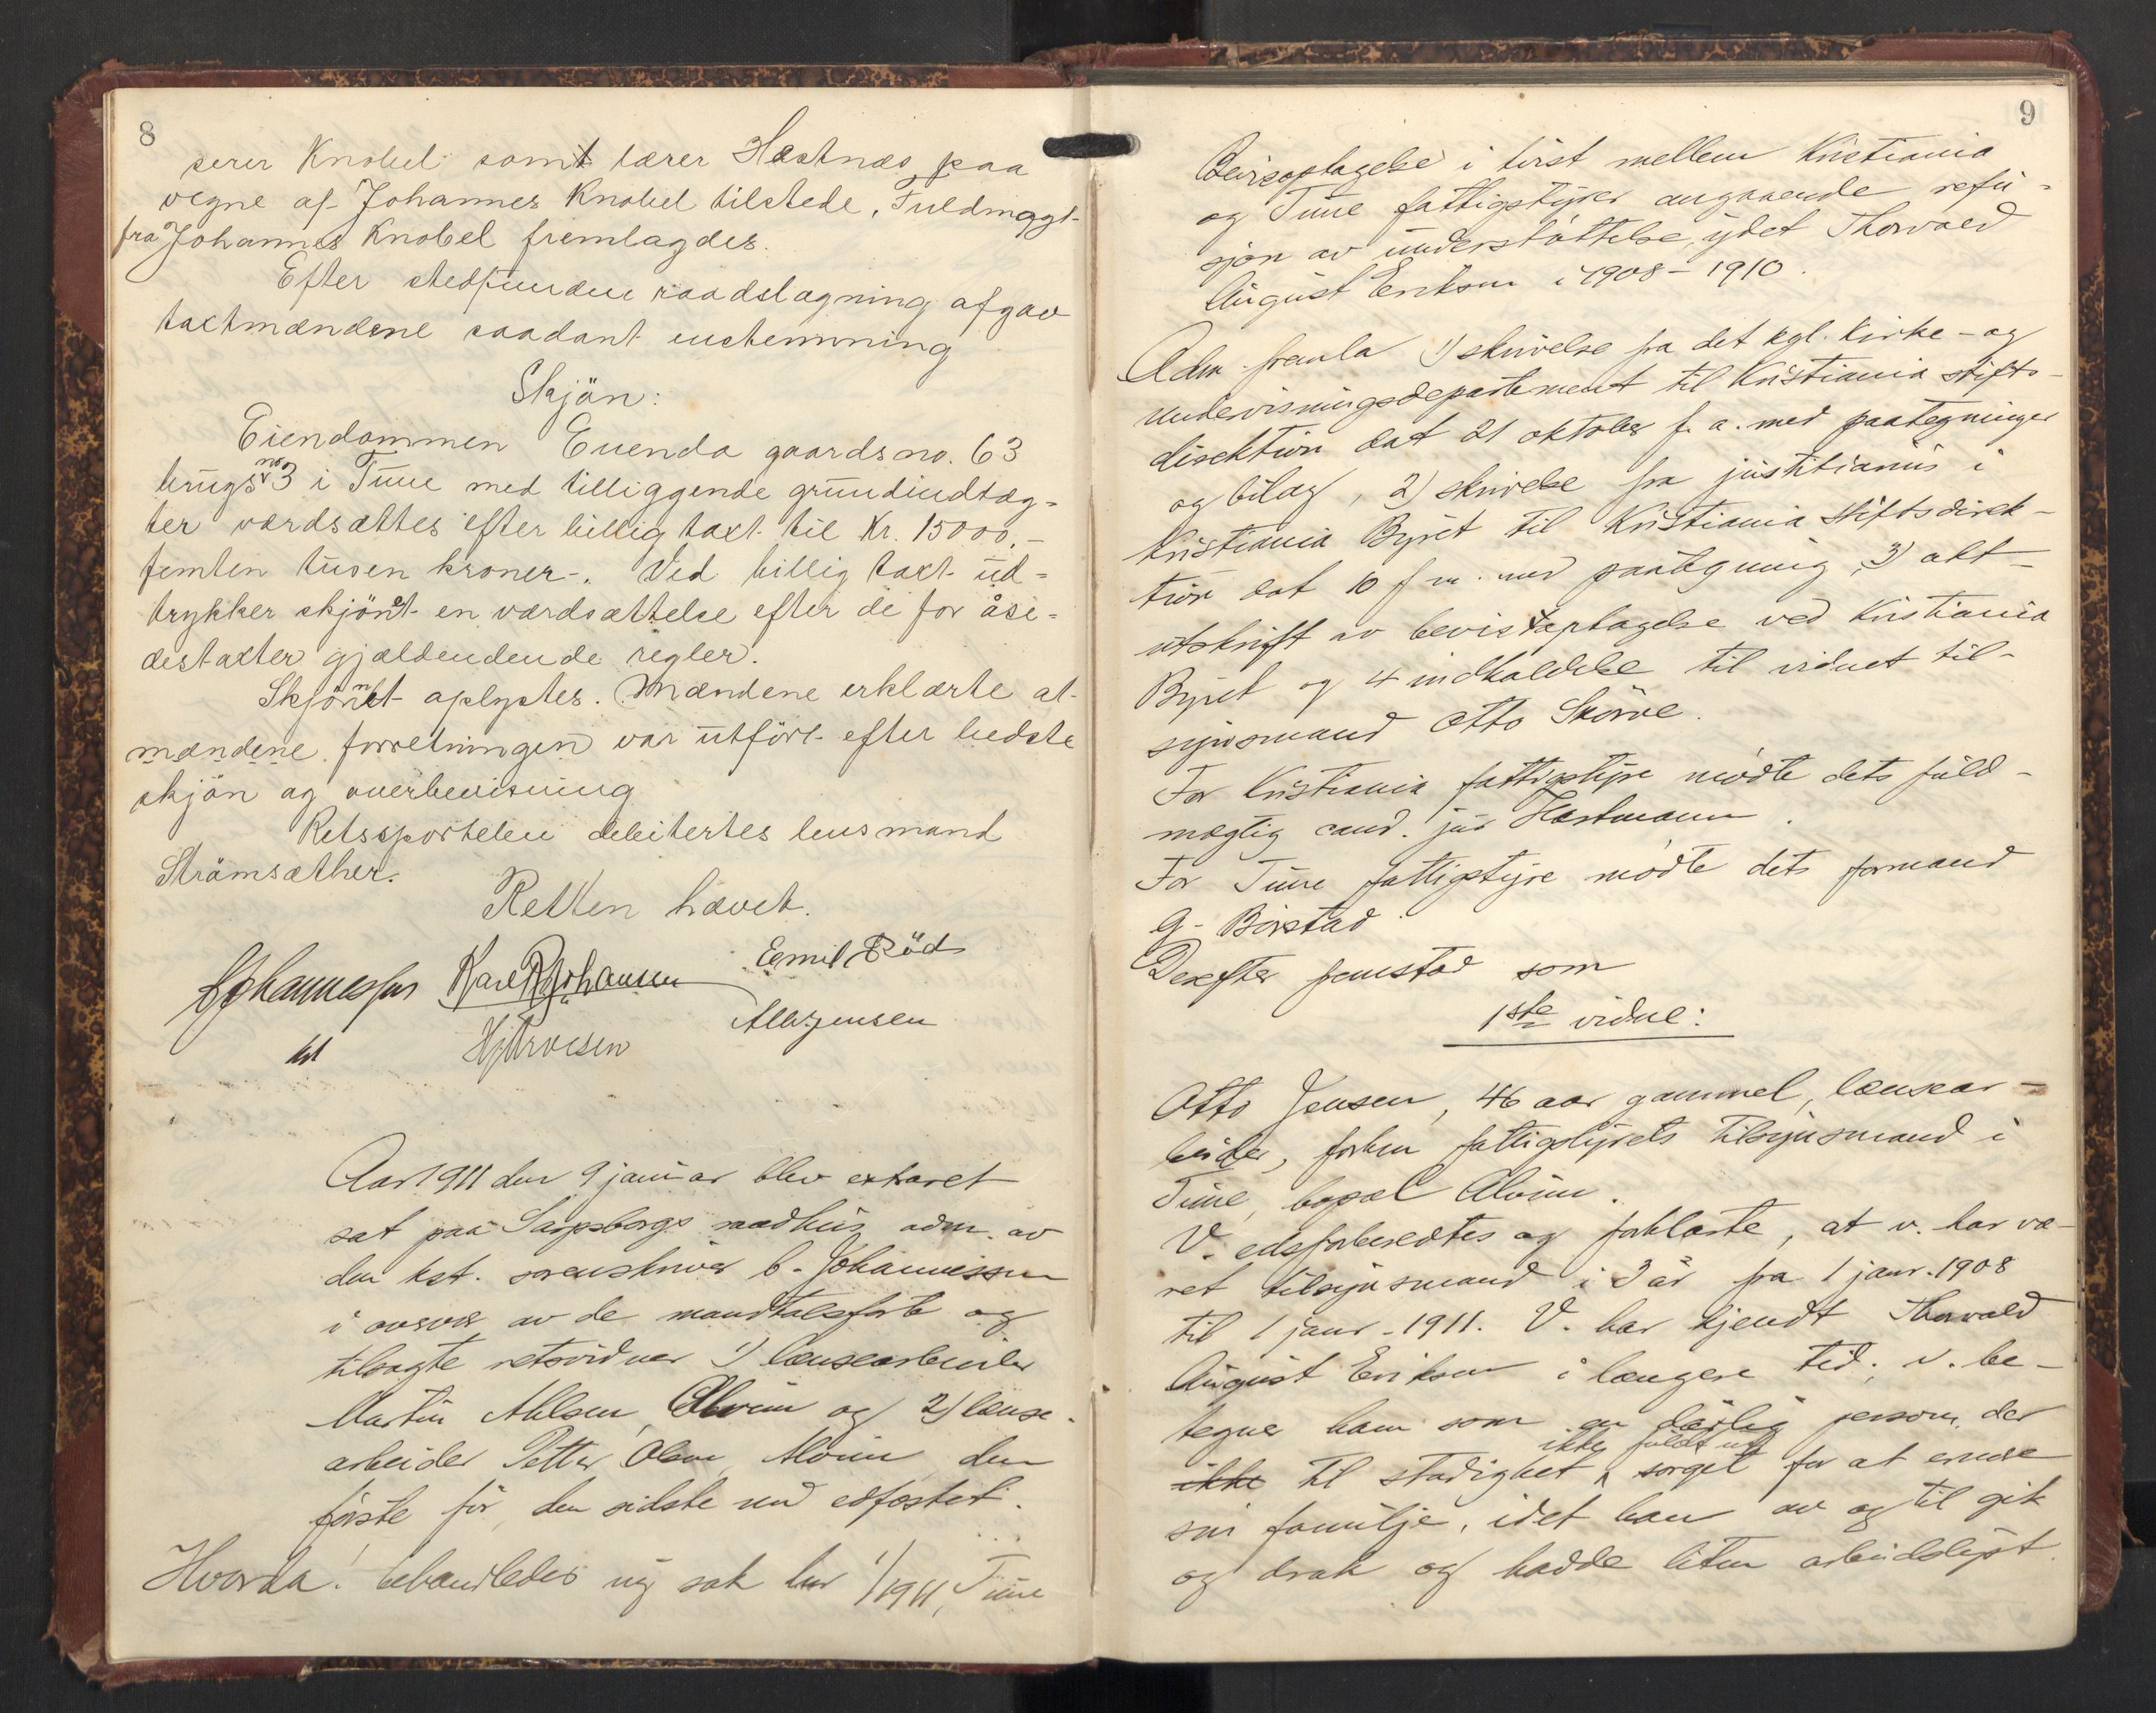 8
serer Knobel samt lærer Hastnæs paa
vegne af Johannes Knobel tilstede. Fuldmagt
fra Johannes Knobel fremlagdes.
Efter stedfunden raadslagning afgav
taxtmændene saadant enstemming
Skjön:
Eiendommen Evenda gaardsno. 63
brugs no 3 i Tune med tilliggende grundindtæg-
ter værdsættes efter billig taxt til Kr. 15000,-
femten tusen kroner-. Ved billig taxt ud-
trykker skjönet en værdsættelse efter de for åse-
destaxter gjældendende regler.
Skjönnet oplystes. Mændene erklærte at
mændene forretningen var utfört efter bedste
skjön og overbevisning
Retssportelen debitertes lensmand
Strömsæther.
Retten hævet.
C Johannessen Karl R Johansen Emil Röd
kst HjArvesen M Jensen
Aar 1911 den 9 januar blev extraret
sat paa Sarpsborgs raadhus adm. av
den kst. sorenskriver C. Johannessen
i overvær av de mandtalsførte og
tilsagte retsvidner 1) lænsearbeider
Martin Nilsen, Alvim og 2) lænse-
arbeider Petter Olsen, Alvim, den
første før, den sidste nu edfæstet.
Hvorda! behandledes ny sak lnr 1/1911, Tune
9
Bevisoptagelse i tvist mellem Kristiania
og Tune fattigstyrer angaaende refu-
sjon av understøttelse, ydet Thorvald
August Eriksen i 1908-1910.
Adm fremla 1) skrivelse fra det kgl. kirke- og
undervisningsdepartement til Kristiania stifts-
direktion dat 21 oktober f. a. med paategninger
og bilag, 2) skrivelse fra justitiarius i
Kristiania Byret til Kristiania stiftsdirek-
tion dat 10 f. m. med paategning, 3) akt-
utskrift av bevisoptagelse ved Kristiania
Byret og 4 indkaldelse til vidnet til-
synsmand Otto Skörve.
For Kristiania fattigstyre mødte dets fuld-
mægtig cand. jur Hartmann.
For Tune fattigstyre mødte dets formand
G. Borstad.
Derefter fremstod som
1ste vidne:
Otto Jensen, 46 aar gammel, lænsear-
beider, forhen fattigstyrets tilsynsmand i
Tune, bopæl Alvim.
V. edsforberedtes og forklarte, at v. har væ-
ret tilsynsmand i 3 år fra 1 janr. 1908
til 1 janr. 1911. V. har kjendt Thorvald
August Eriksen i længere tid; v. be-
tegner ham som en dårlig person, der
ikke til stadighet ikke fuldt ut sørget for at ernære
sin familje, idet han av og til gik
og drak og hadde liten arbeidslyst.